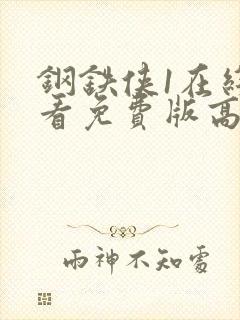 鋼鉄俠1在
看免費版高
雨神不知處